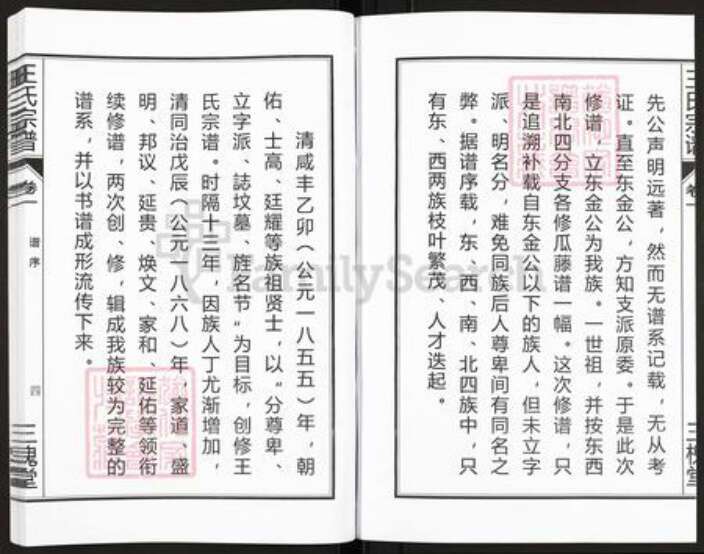 先公声明远著，然而无谱系记载，无从考
证。直至东金公，方知支派原委。于是此次
修谱，立东金公为我族。一世祖，并按东西
南北四分支各修瓜藤谱一幅。这次修谱，只
是追溯补载自东金公以下的族人，但未立字
派、明名分，难免同族后人尊卑间有同名之
弊。据谱序载，东、西、南、北四族中，只
有东、西两族枝叶繁茂、人才迭起。
清咸丰乙卯（公元一八五五）年，朝
佑、士高、廷耀等族祖贤士，以“分尊卑、
立字派、誌坟墓、旌名节”为目标，创修王
氏宗谱。时隔十三年，因族人丁尤渐增加，
清同治戊辰（公元一八六八）年，家道、盛
明、邦议、延贵、焕文、家和、延佑等领衔
续修谱，两次创、修，辑成我族较为完整的
谱系，并以书谱成形流传下来。
王氏宗谱
卷一
谱序
四
三槐堂
王氏宗谱
卷一
三槐堂
FamilySearch